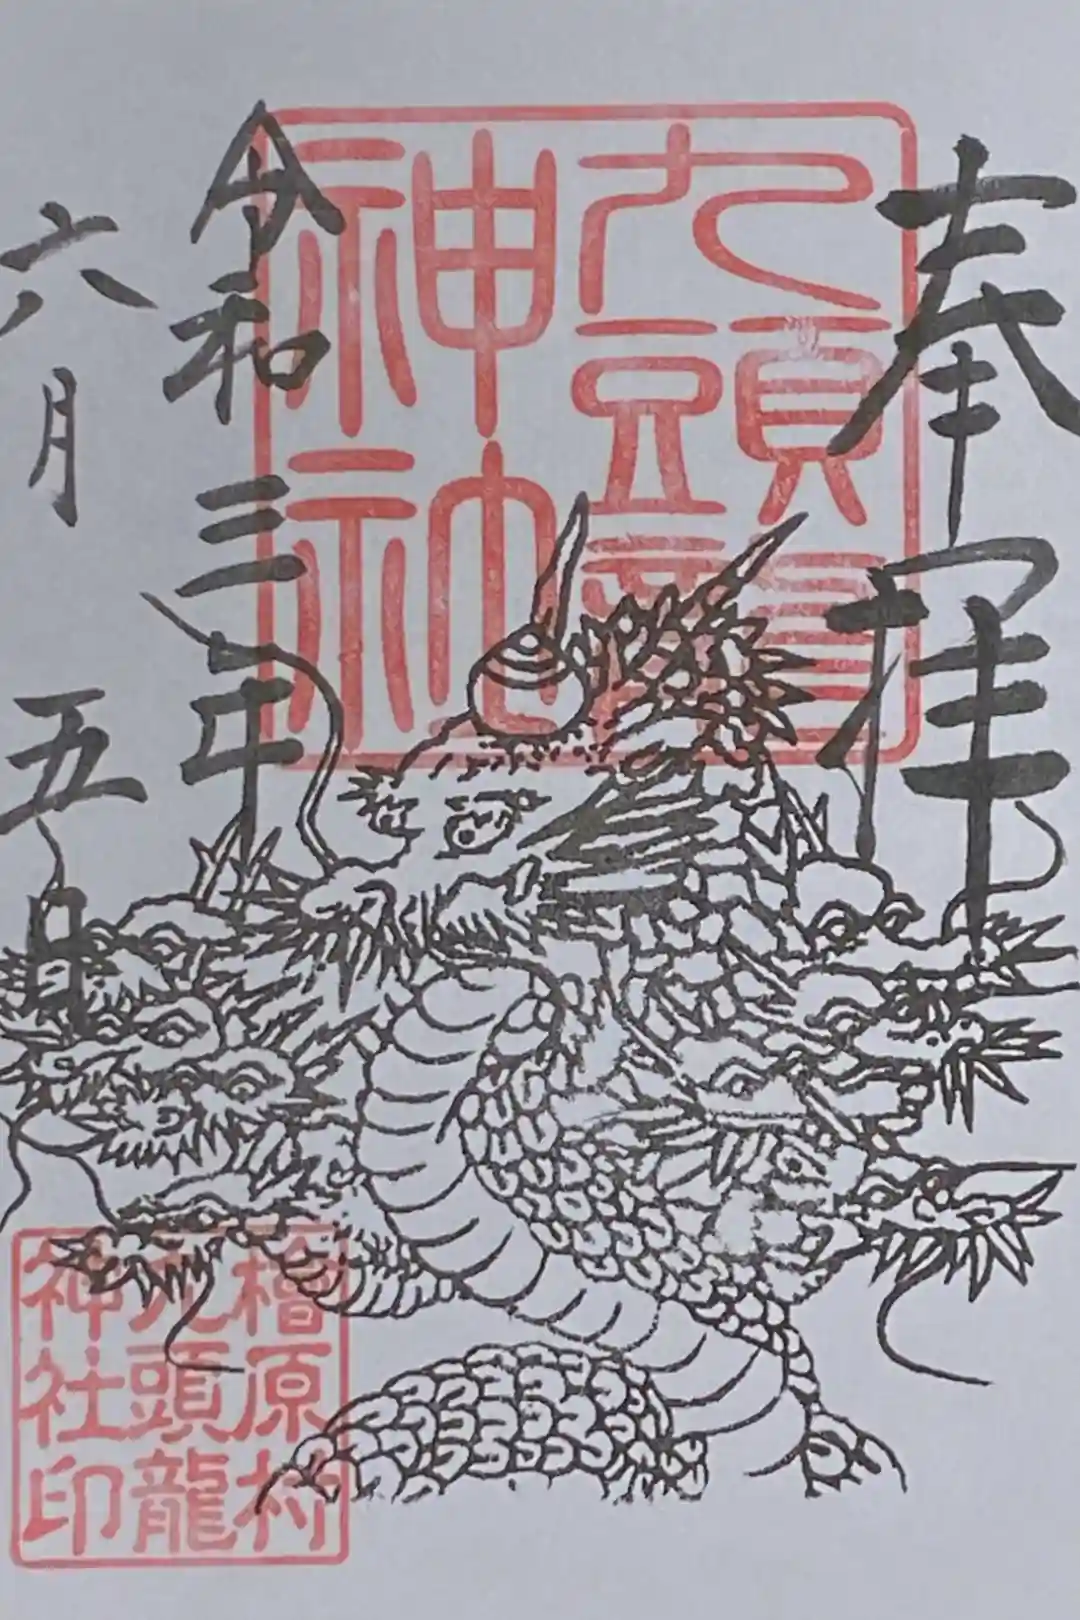 奉拝
九頭龍
神社
令和三年
六月五日
檜原村
九頭龍
神社印